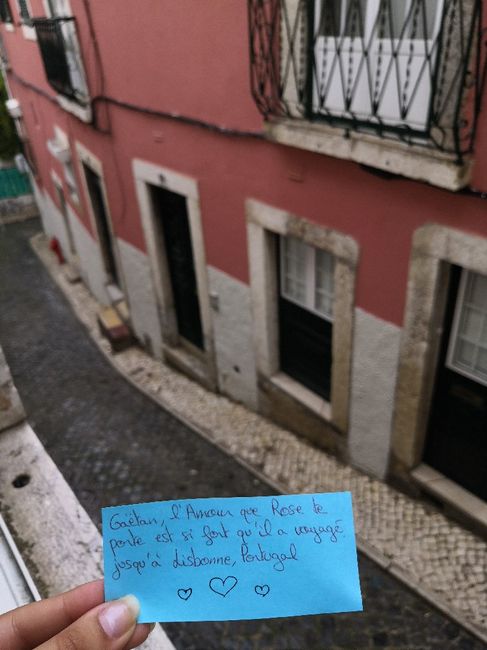 Gaëtan, l'Amour que Rose te
porte est si fort qu'il a voyagé
jusqu'à Lisbonne, Portugal